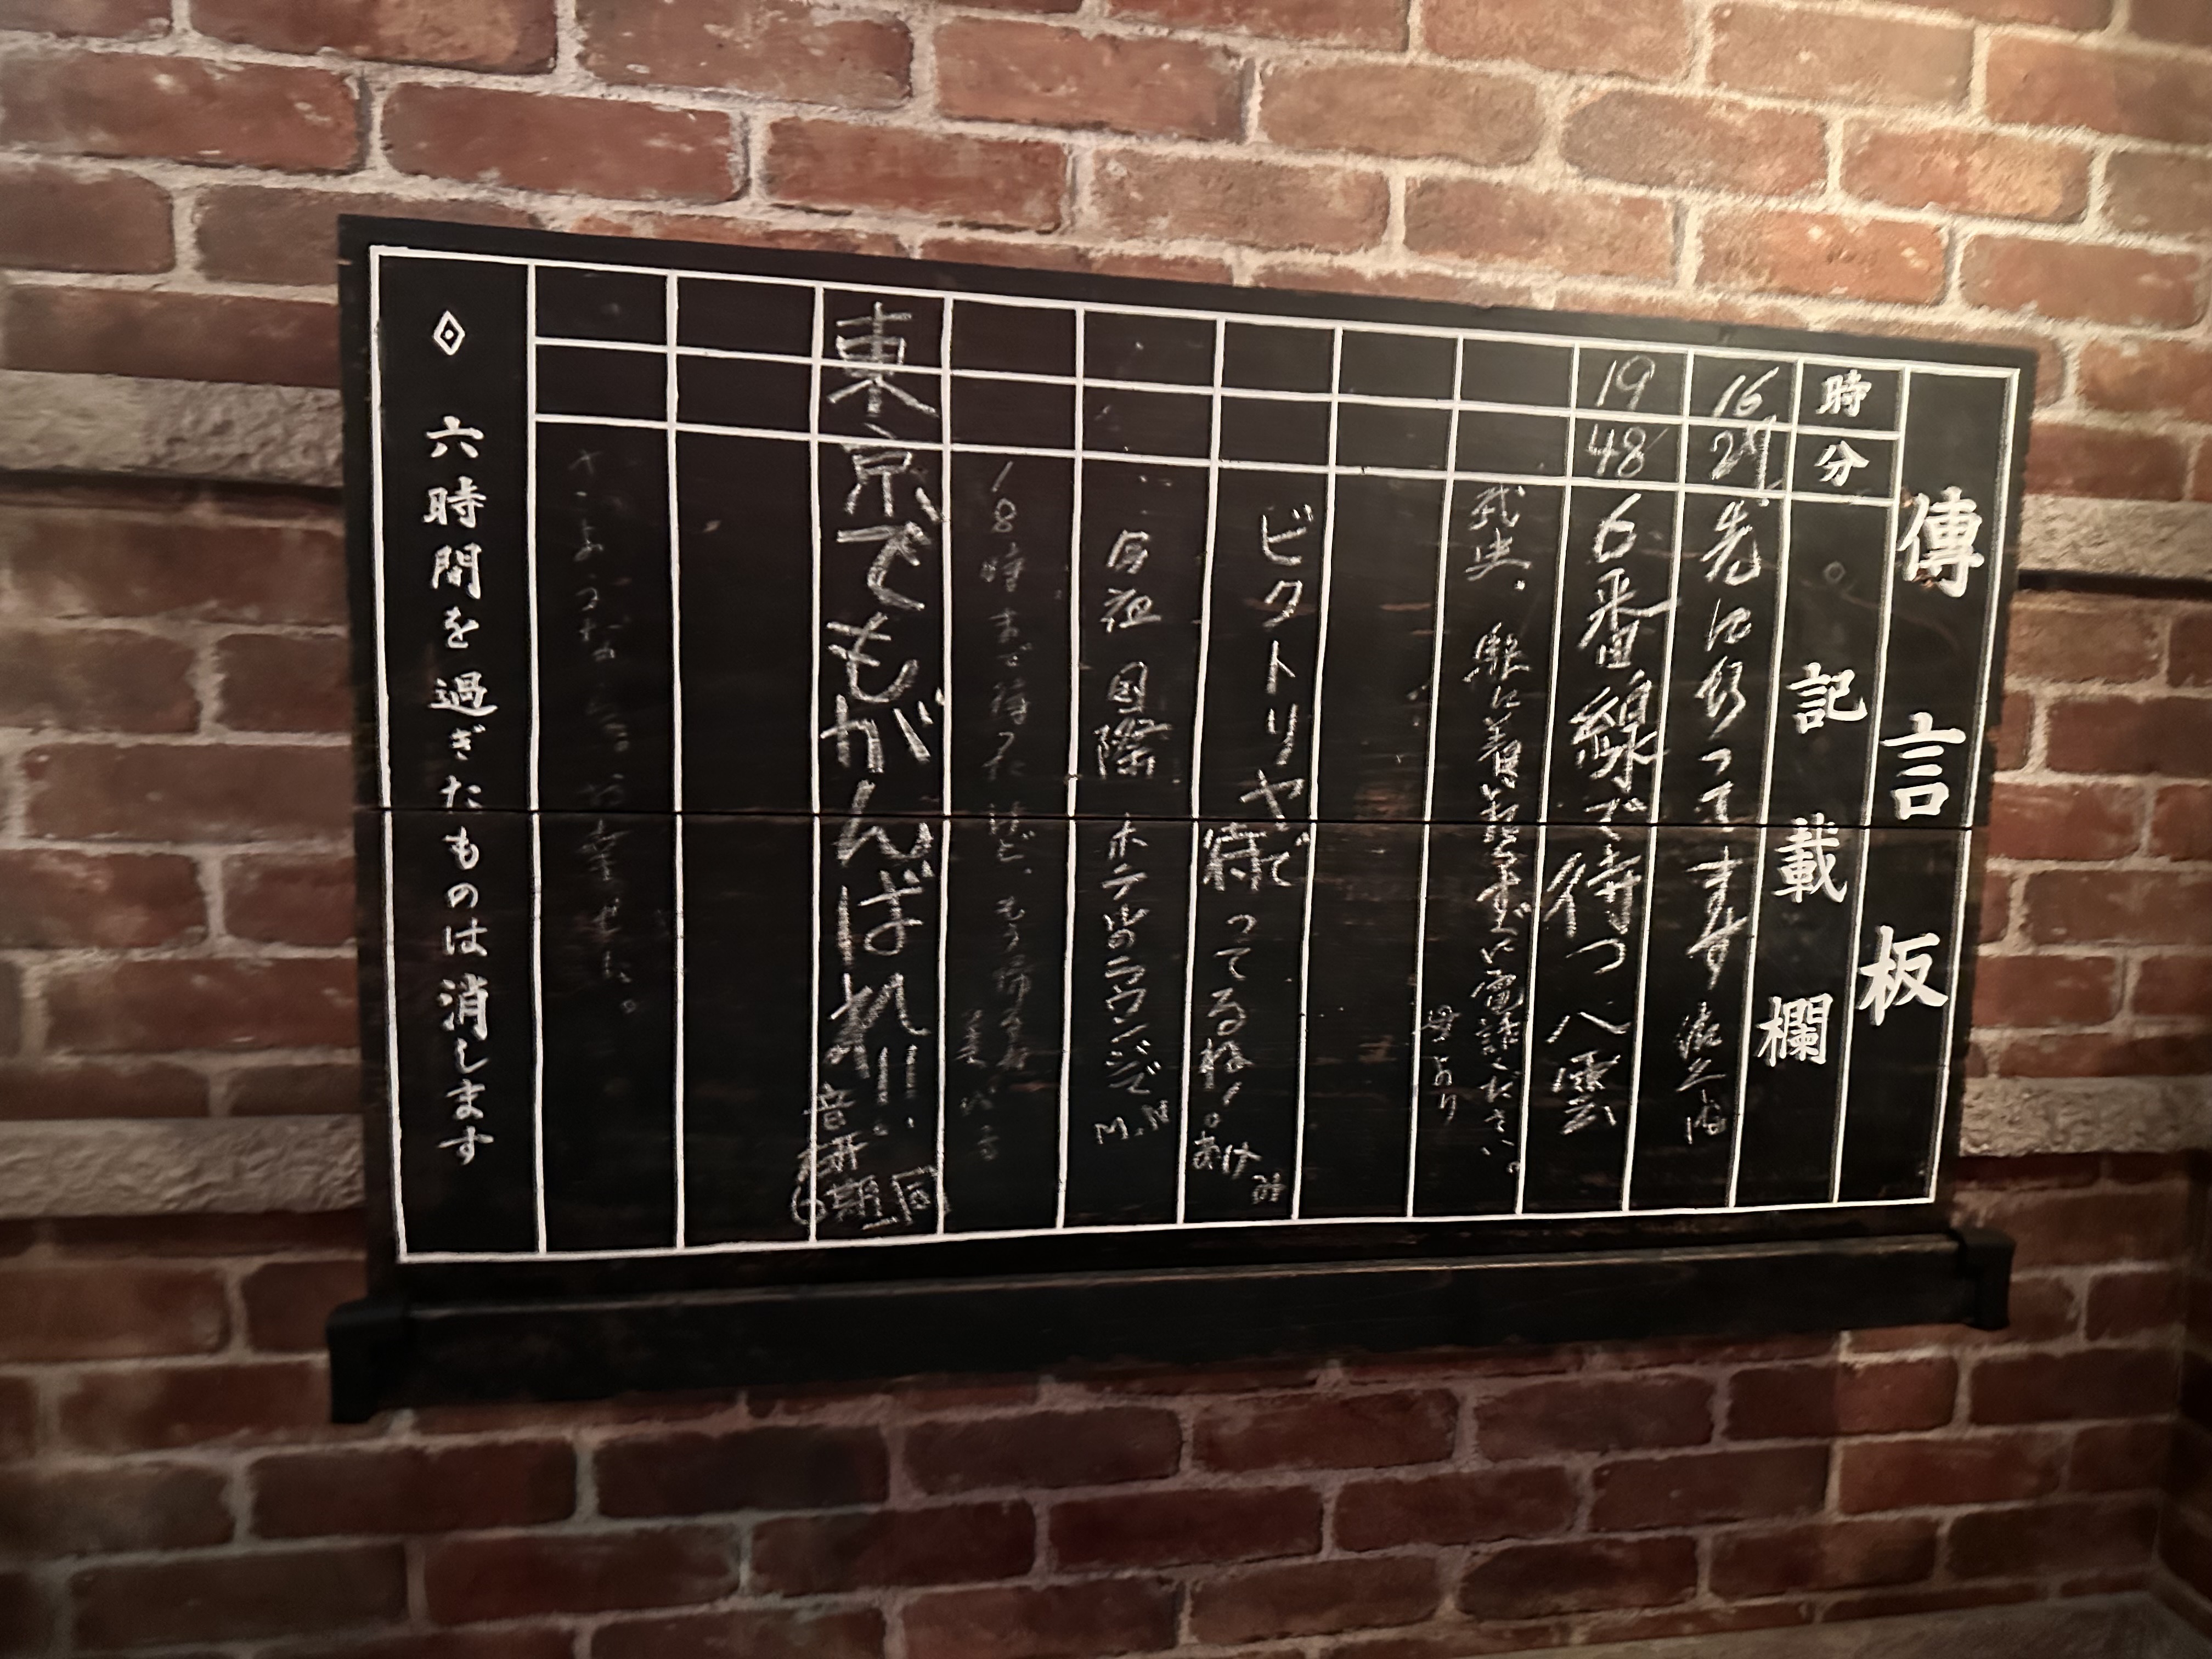 傳言板
時 分 記載欄
16 先に行ってます
19 48 6番線で待つ 八雲
武史、駅に着いたらすぐに電話ください。
母より
ビクトリヤで
待ってるね!。あけ
今夜国際ホテルのラウンジで M.N
18時まで待ったけど、もう帰ります
東京でもがんばれ!!!
音研
6期一同
さようなら お幸せに。
◇ 六時間を過ぎたものは消します